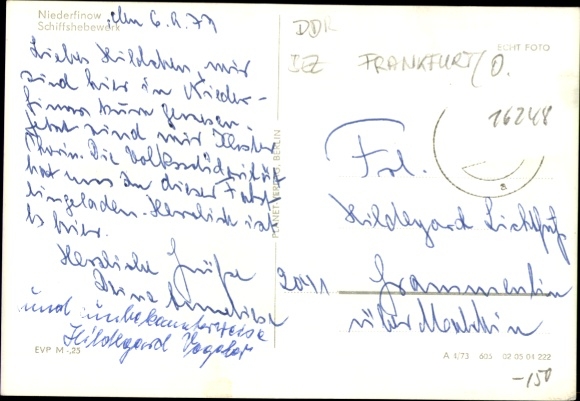 Niederfinow
Schiffshebewerk
den 6.9.79
Liebes Hildchen, wir
sind hier in Nieder-
finow zum gewesen.
Jetzt sind wir Kloster
Chorin. Die Volkssolidarität
hat uns zu dieser Fahrt
eingeladen. Herrlich ist
es hier.
Herzliche Grüße
Deine
und unbekannterweise
Hildegard
EVP M -,25
PLANET-VERLAG, BERLIN
DDR
IZ FRANKFURT/O.
ECHT FOTO
16248
s
Frl.
Hildegard
2041 Grammentin
über Malchin
A 1/73 605 02 05 04 222
-150